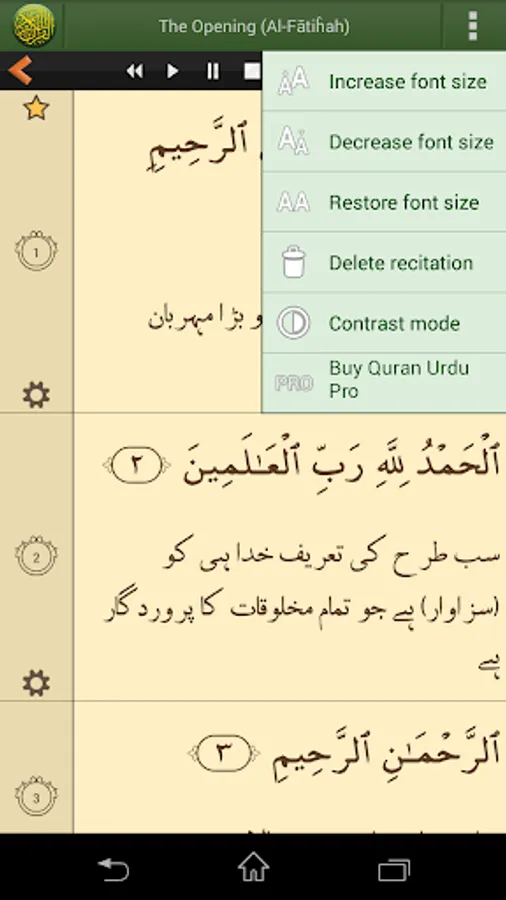 The Opening (Al-Fātiĥah)
Increase font size
Decrease font size
Restore font size
Delete recitation
Contrast mode
PRO
Buy Quran Urdu
Pro
ٱلرَّحِيمِ
1
و بڑا مہربان
ٱلْحَمْدُ لِلَّهِ رَبِّ ٱلْعَـٰلَمِينَ ٢
2
سب طرح کی تعریف خدا ہی کو
(سزاوار) ہے جو تمام مخلوقات کا پروردگار
ہے
ٱلرَّحْمَـٰنِ ٱلرَّحِيمِ ٣
3